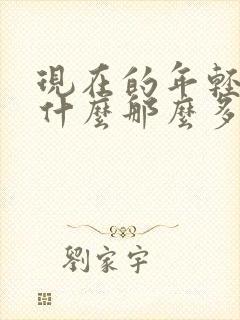 現在的年輕
什麼那麼多
劉家宇